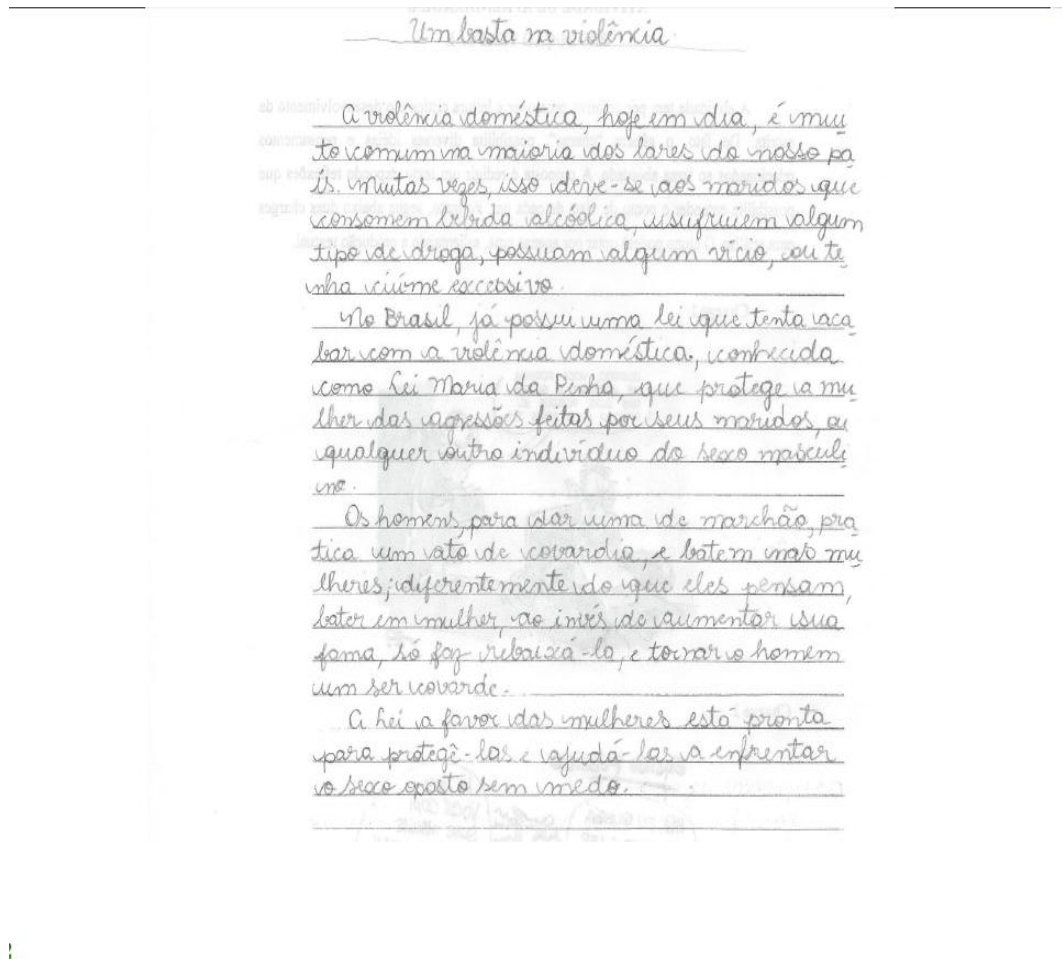 Um basta na violência
A violência doméstica, hoje em dia, é mui
to comum na maioria dos lares do nosso pa
ís. Muitas vezes, isso deve-se aos maridos que
consomem bebida alcóolica, usufruiem algum
tipo de droga, possuam algum vício, ou te
nha ciúme excessivo.
No Brasil, já possui uma lei que tenta aca
bar com a violência doméstica, conhecida
como Lei Maria da Penha, que protege a mu
lher das agressões feitas por seus maridos, ou
qualquer outro indivíduo do sexo masculi
no.
Os homens, para dar uma de marchão, pra
tica um ato de covardia, e batem nas mu
lheres; diferentemente do que eles pensam,
bater em mulher, ao invés de aumentar sua
fama, só faz rebaixá-la, e tornar o homem
um ser covarde.
A Lei a favor das mulheres está pronta
para protegê-las e ajudá-las a enfrentar
o sexo oposto sem medo.